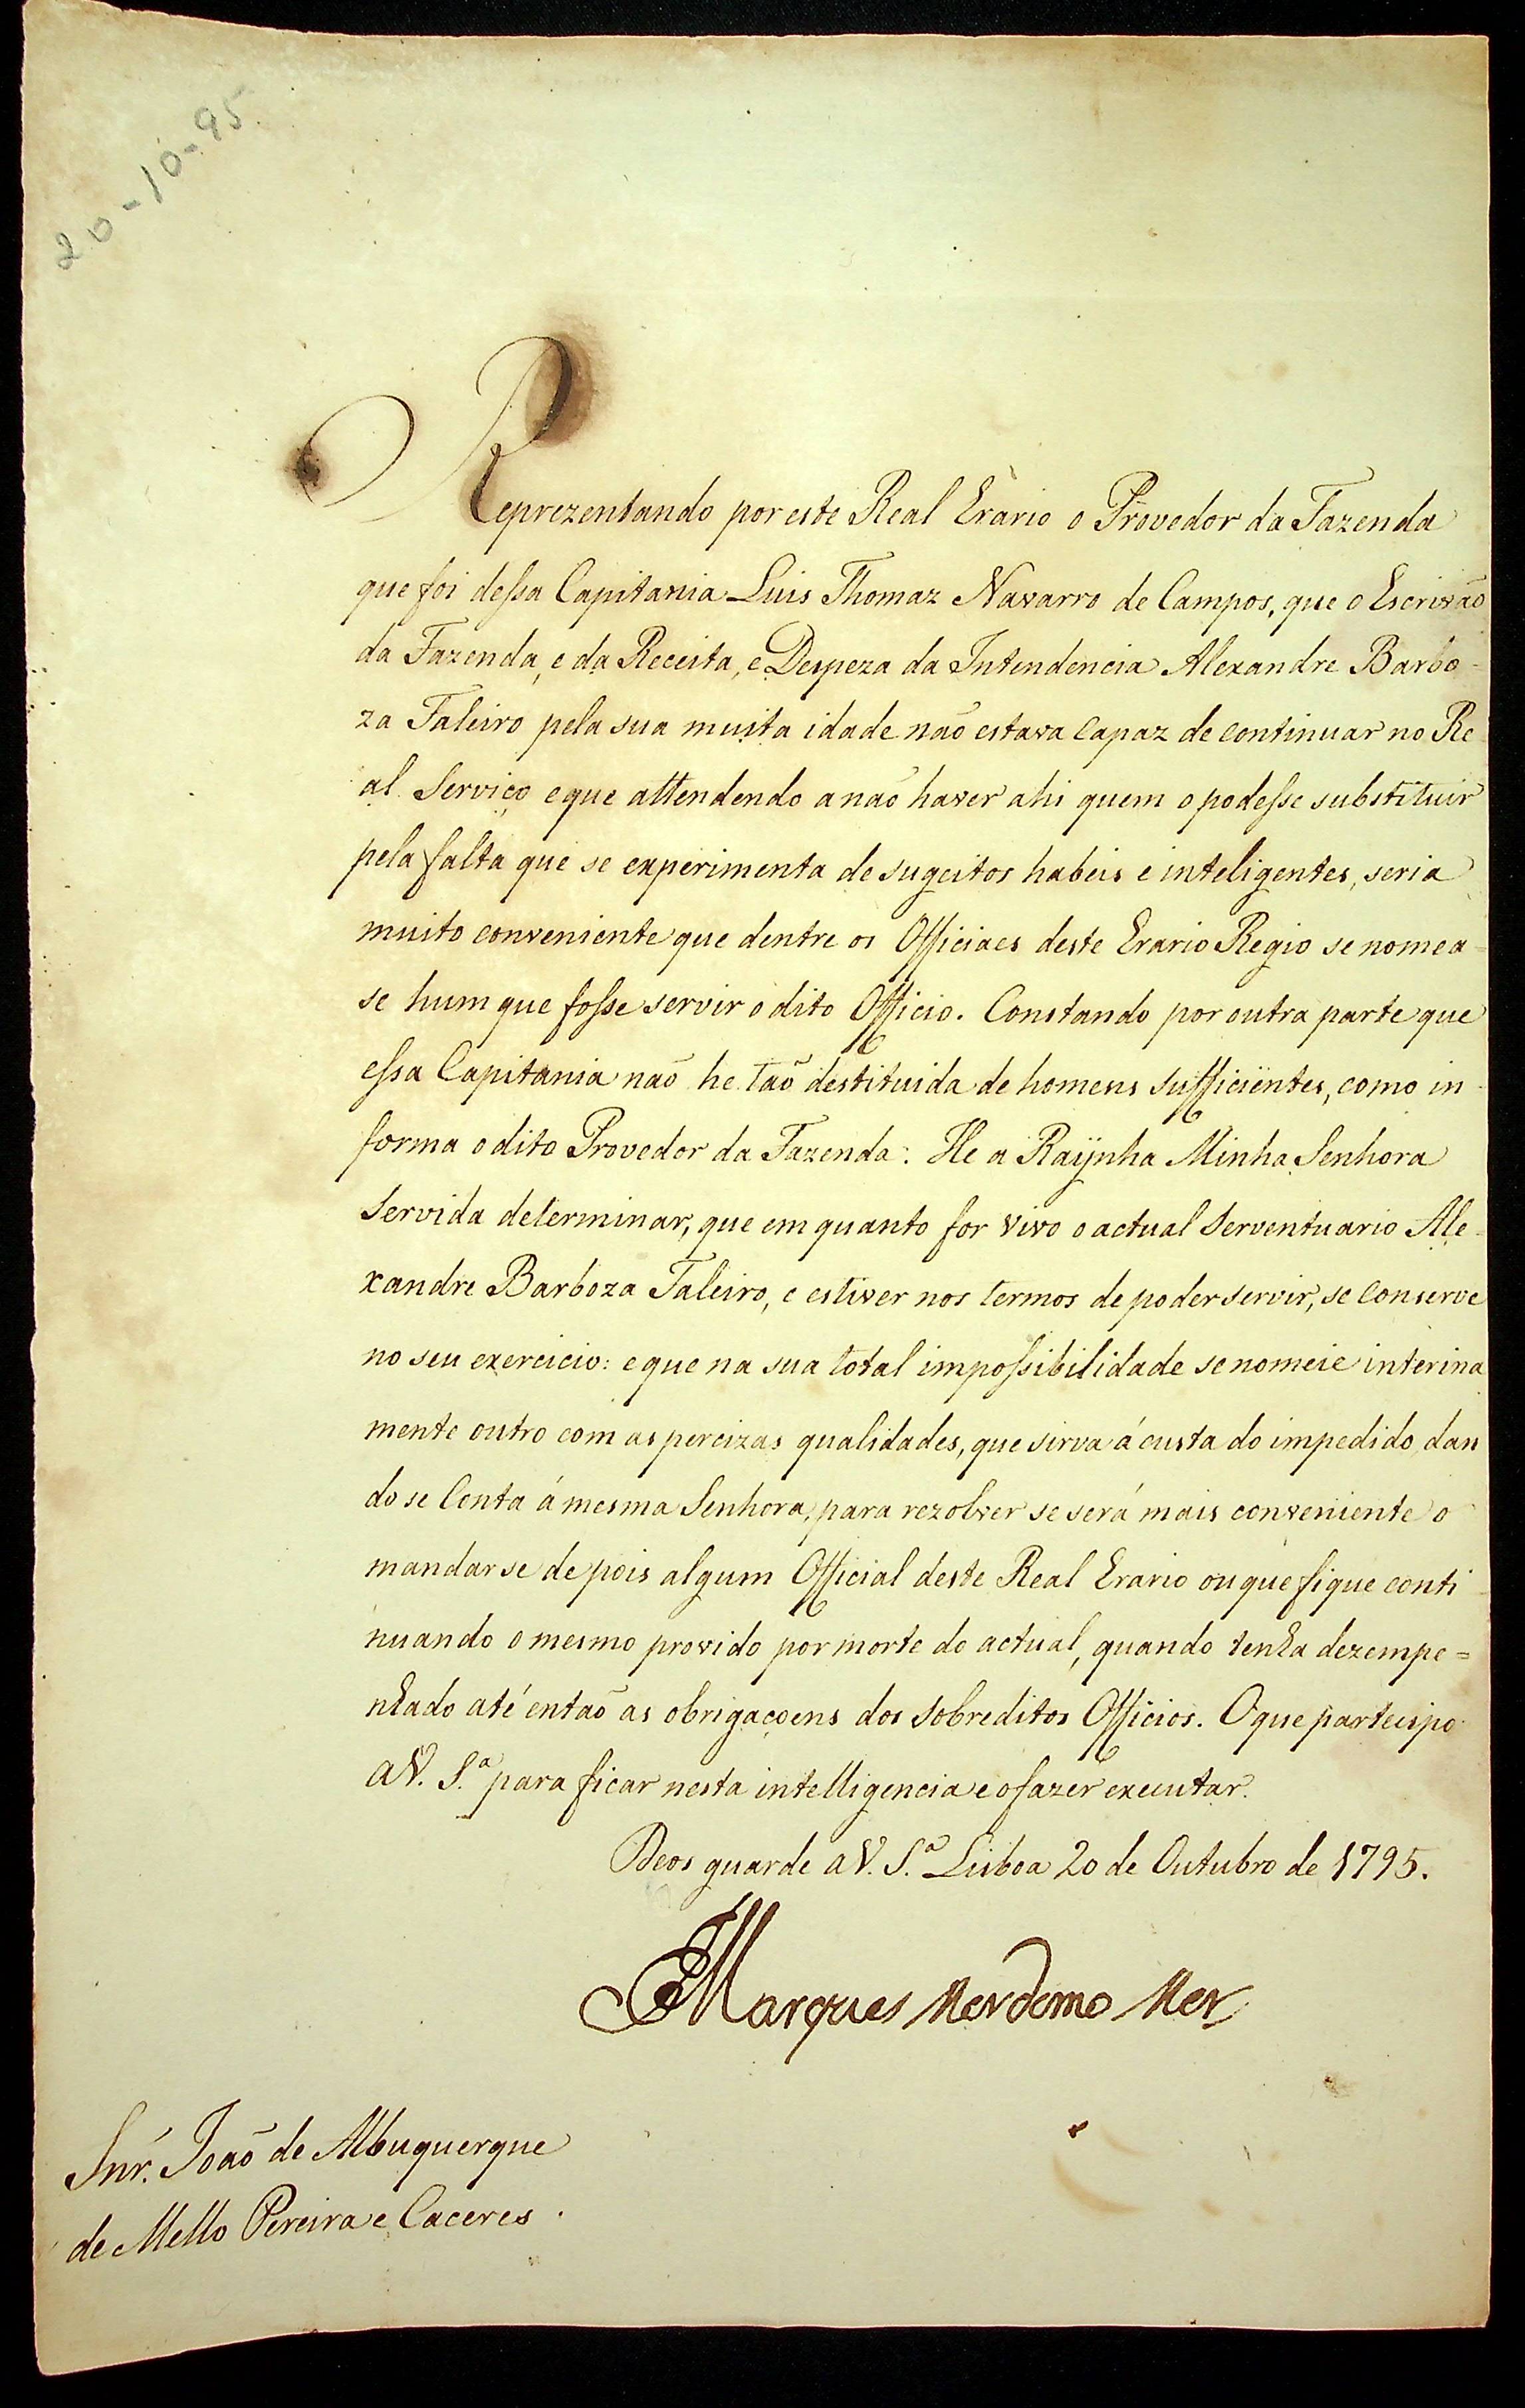 20-10-95.
Reprezentando por este Real Erario o Provedor da Fazenda
que foi dessa Capitania Luis Thomaz Navarro de Campos, que o Escrivaõ
da Fazenda, e da Receita, e Despeza da Intendencia Alexandre Barbo-
za Faleiro pela sua muita idade naõ estava Capaz de continuar no Re
al Serviço e que attendendo a naõ haver ahi quem o podesse substituir
pela falta que se experimenta de sugeitos habeis e inteligentes, seria
muito conveniente que dentre os Officiaes deste Erario Regio se nomea-
se hum que fosse servir o dito Officio. Constando por outra parte que
essa Capitania naõ he taõ destituida de homens sufficientes, como in-
forma o dito Provedor da Fazenda. He a Raÿnha Minha Senhora
Servida determinar, que em quanto for vivo o actual Serventuario Ale-
xandre Barboza Faleiro, e estiver nos termos de poder servir, se Conserve
no seu exercicio: e que na sua total impossibilidade se nomeie interina
mente outro com as percizas qualidades, que sirva á custa do impedido, dan
do se Conta á mesma Senhora, para rezolver se será mais conveniente o
mandar se depois algum Official deste Real Erario ou que fique conti-
nuando o mesmo provido por morte do actual, quando tenha dezempe=
nhado até entaõ as obrigaçoens dos Sobreditos Officios. O que partecipo
a V. S.ª para ficar nesta intelligencia e o fazer executar.
Deos guarde a V. S.ª Lisboa 20 de Outubro de 1795.
Marques Mordomo Mor
Snr. Joaõ de Albuquerque
de Mello Pereira e Caceres.